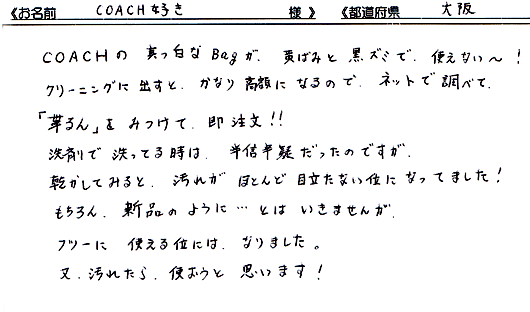 《お名前 COACH好き 様》 《都道府県 大阪
COACHの 真っ白なBagが、黄ばみと黒ズミで、使えない～！
クリーニングに出すと、かなり高額になるので、ネットで調べて、
「革るん」をみつけて、即注文!!
洗剤で洗ってる時は、半信半疑だったのですが、
乾かしてみると、汚れがほとんど目立たない位になってました！
もちろん、新品のように…とはいきませんが、
フツーに使える位には、なりました。
又、汚れたら、使おうと思います！